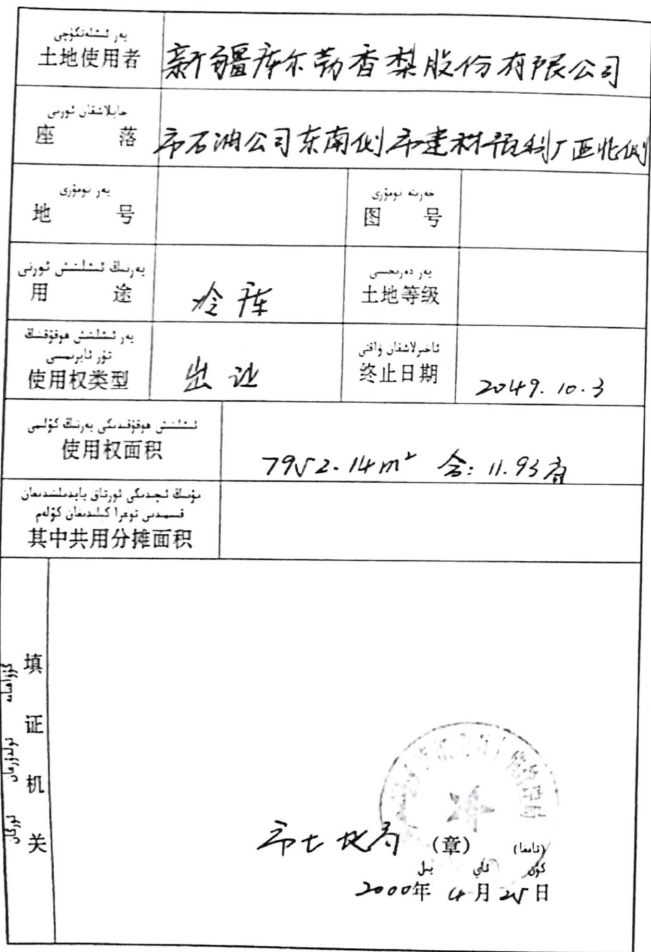 يەر ئىشلەتكۈچى
土地使用者 新疆库尔勒香梨股份有限公司
جايلاشقان ئورنى
座 落 市石油公司东南侧市建材预制厂西北侧
يەر نومۇرى
地 号
خەرىتە نومۇرى
图 号
يەرنىڭ ئىشلىتىش ئورنى
用 途 冷库
يەر دەرىجىسى
土地等级
يەر ئىشلىتىش هوقۇقىنىڭ
تۈر ئايرىمىسى
使用权类型 出让
ئاخىرلاشقان ۋاقتى
终止日期 2049.10.3
ئىشلىتىش هوقۇقىدىكى يەرنىڭ كۆلىمى
使用权面积 7952.14m² 合:11.93亩
بۇنىڭ ئىچىدىكى ئورتاق پايدىلىنىدىغان
قىسمىدىن توغرا كېلىدىغان كۆلەم
其中共用分摊面积
填证机关
گۇۋاھنامە تولدۇرغان ئورگان
市土地局 (章) (تامغا)
كۈن ئاي يىل
2000年 4月 25日